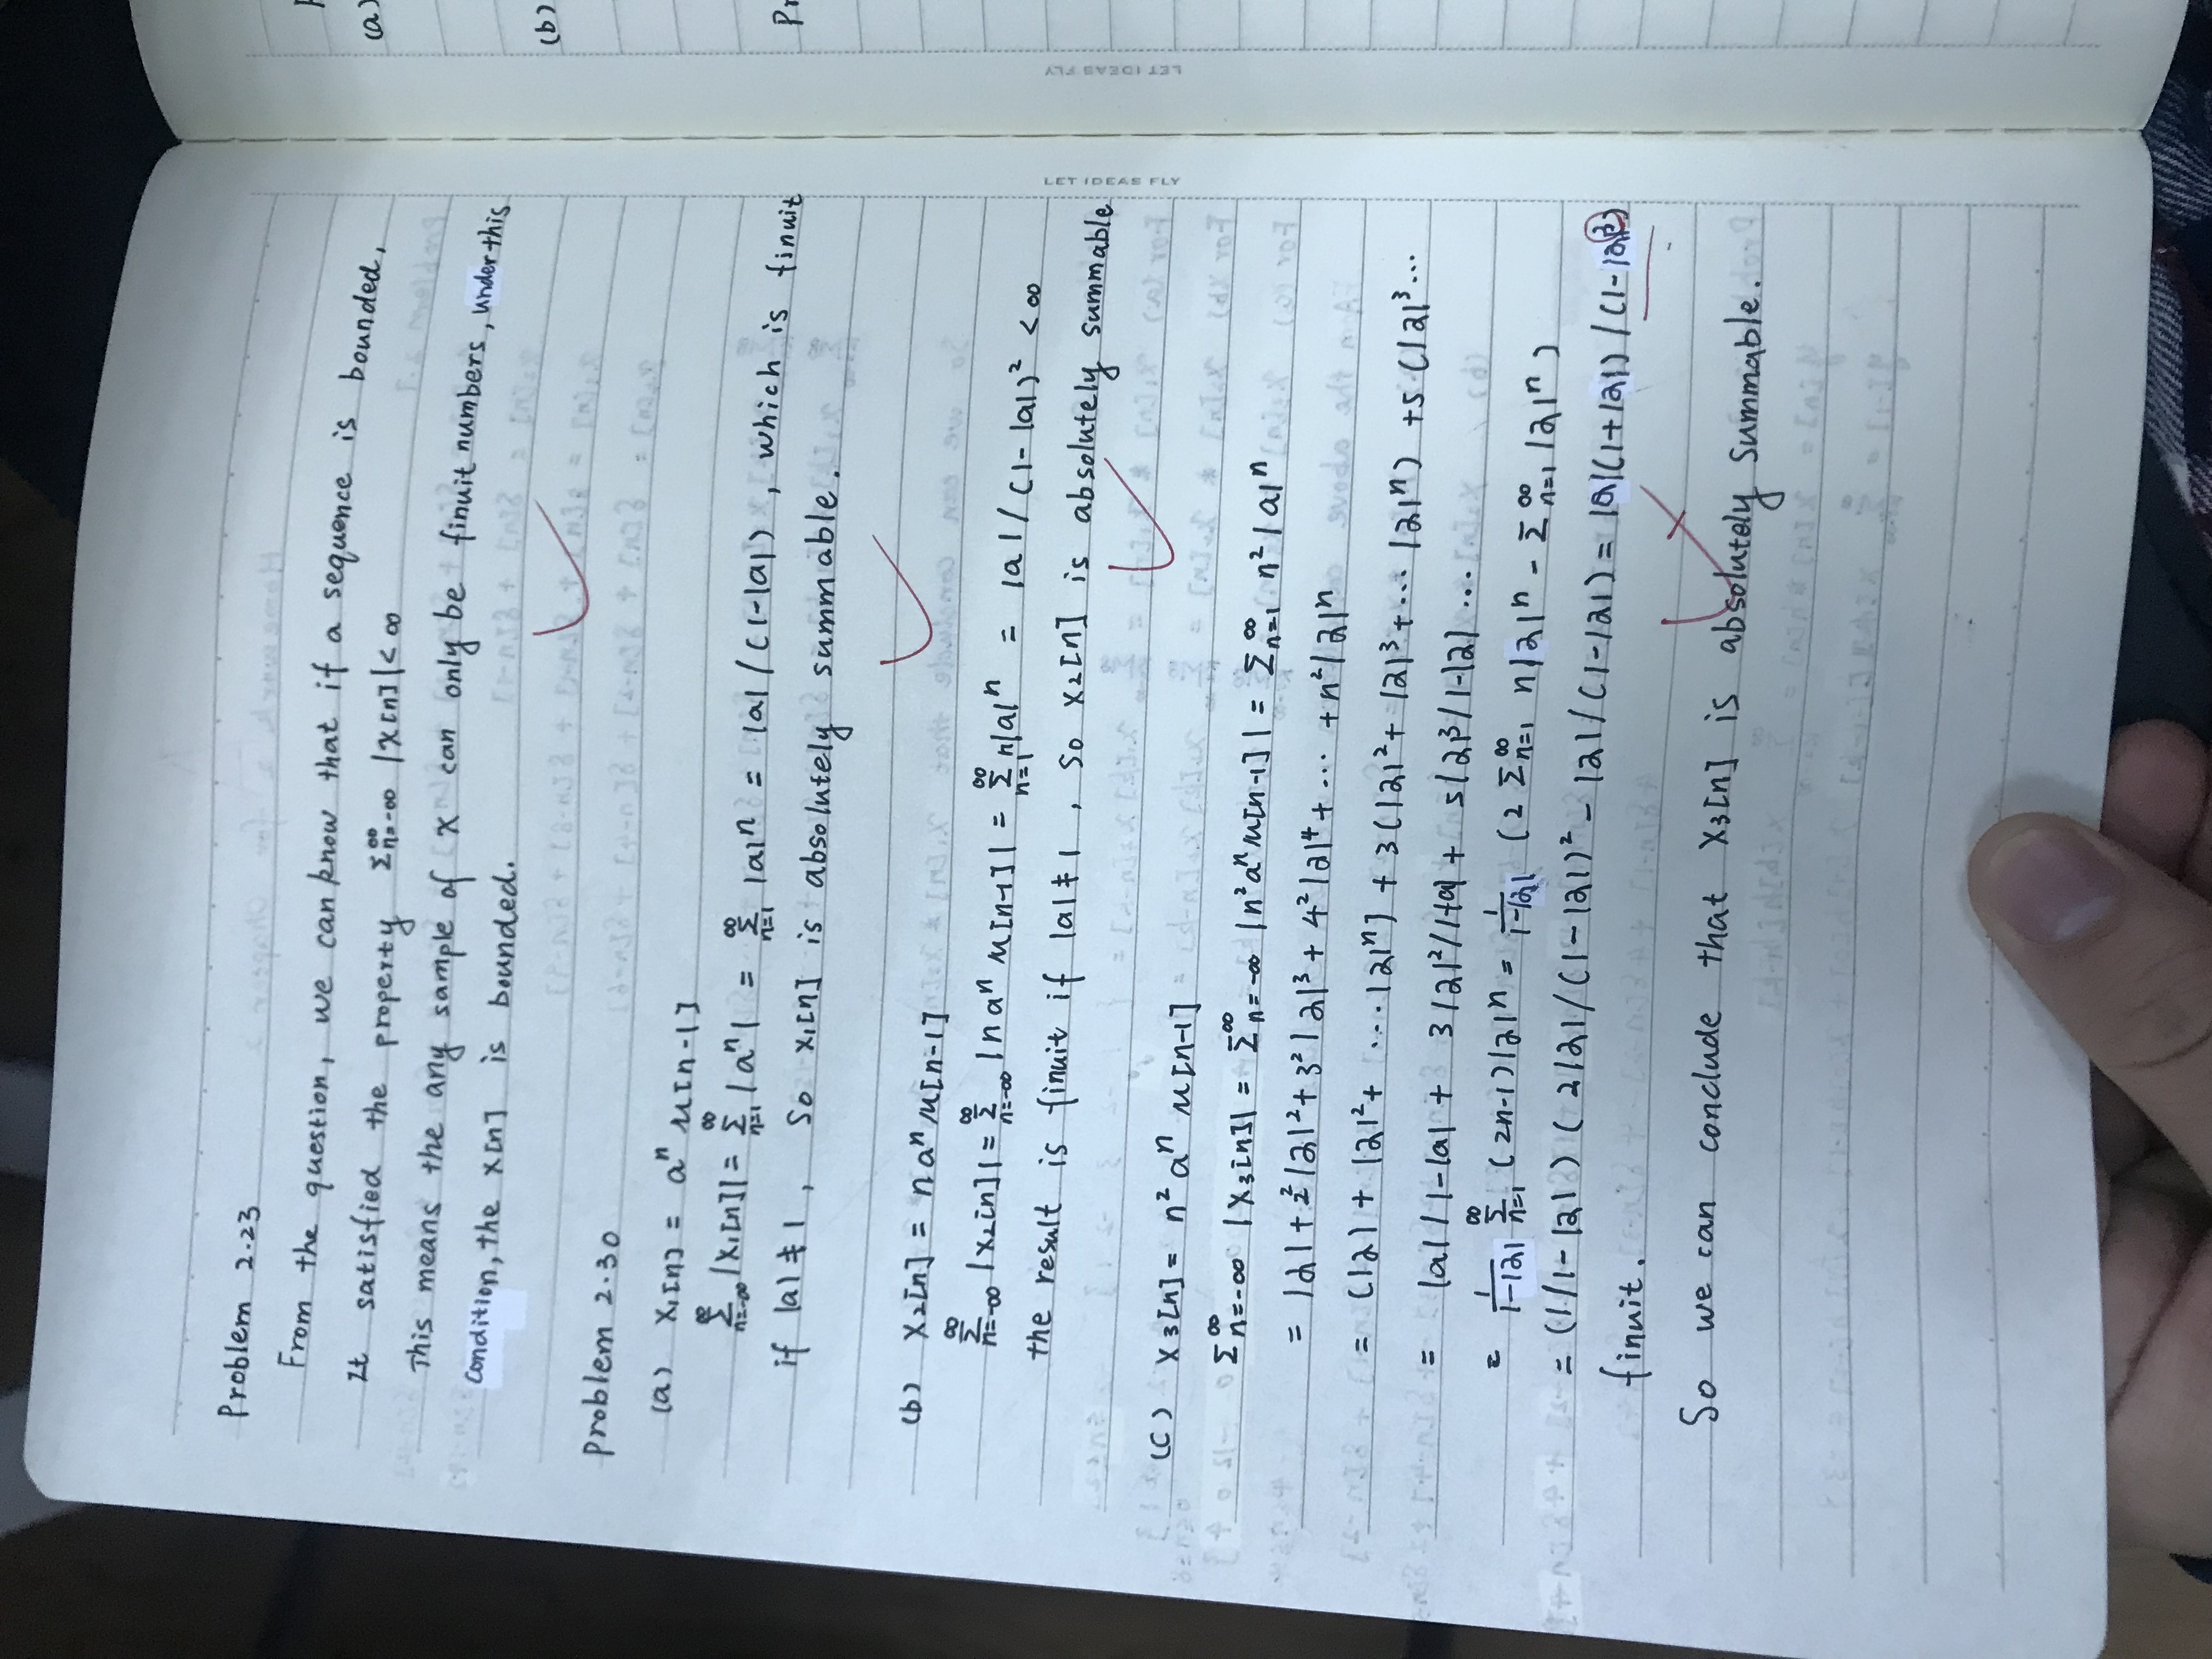 Problem 2.23
From the question, we can know that if a sequence is bounded,
It satisfied the property Σ_{n=-∞}^{∞} |x[n]| < ∞
This means the any sample of x can only be finuit numbers, under this
condition, the x[n] is bounded.
problem 2.30
(a) x₁[n] = aⁿ μ[n-1]
Σ_{n=-∞}^{∞} |x₁[n]| = Σ_{n=1}^{∞} |aⁿ| = Σ_{n=1}^{∞} |a|ⁿ = |a| / (1-|a|), which is finuit
if |a| ≠ 1, So x₁[n] is absolutely summable.
(b) x₂[n] = n aⁿ μ[n-1]
Σ_{n=-∞}^{∞} |x₂[n]| = Σ_{n=-∞}^{∞} |n aⁿ μ[n-1]| = Σ_{n=1}^{∞} n|a|ⁿ = |a| / (1-|a|)² < ∞
the result is finuit if |a| ≠ 1, so x₂[n] is absolutely summable
(c) x₃[n] = n² aⁿ μ[n-1]
Σ_{n=-∞}^{∞} |x₃[n]| = Σ_{n=-∞}^{∞} |n² aⁿ μ[n-1]| = Σ_{n=1}^{∞} n² |a|ⁿ
= |a| + 2²|a|² + 3²|a|³ + 4²|a|⁴ + ... + n²|a|ⁿ
= (|a| + |a|² + ... |a|ⁿ) + 3(|a|² + |a|³ + ... |a|ⁿ) + 5(|a|³ ...
= |a| / 1-|a| + 3|a|² / 1-|a| + 5|a|³ / 1-|a| ...
= 1/(1-|a|) Σ_{n=1}^{∞} (2n-1)|a|ⁿ = 1/(1-|a|) (2 Σ_{n=1}^{∞} n|a|ⁿ - Σ_{n=1}^{∞} |a|ⁿ)
= (1/1-|a|) (2|a| / (1-|a|)² - |a| / (1-|a|) = |a|(1+|a|) / (1-|a|³)
finuit.
So we can conclude that x₃[n] is absolutely summable.
LET IDEAS FLY
LET IDEAS FLY
(a)
(b)
Pr